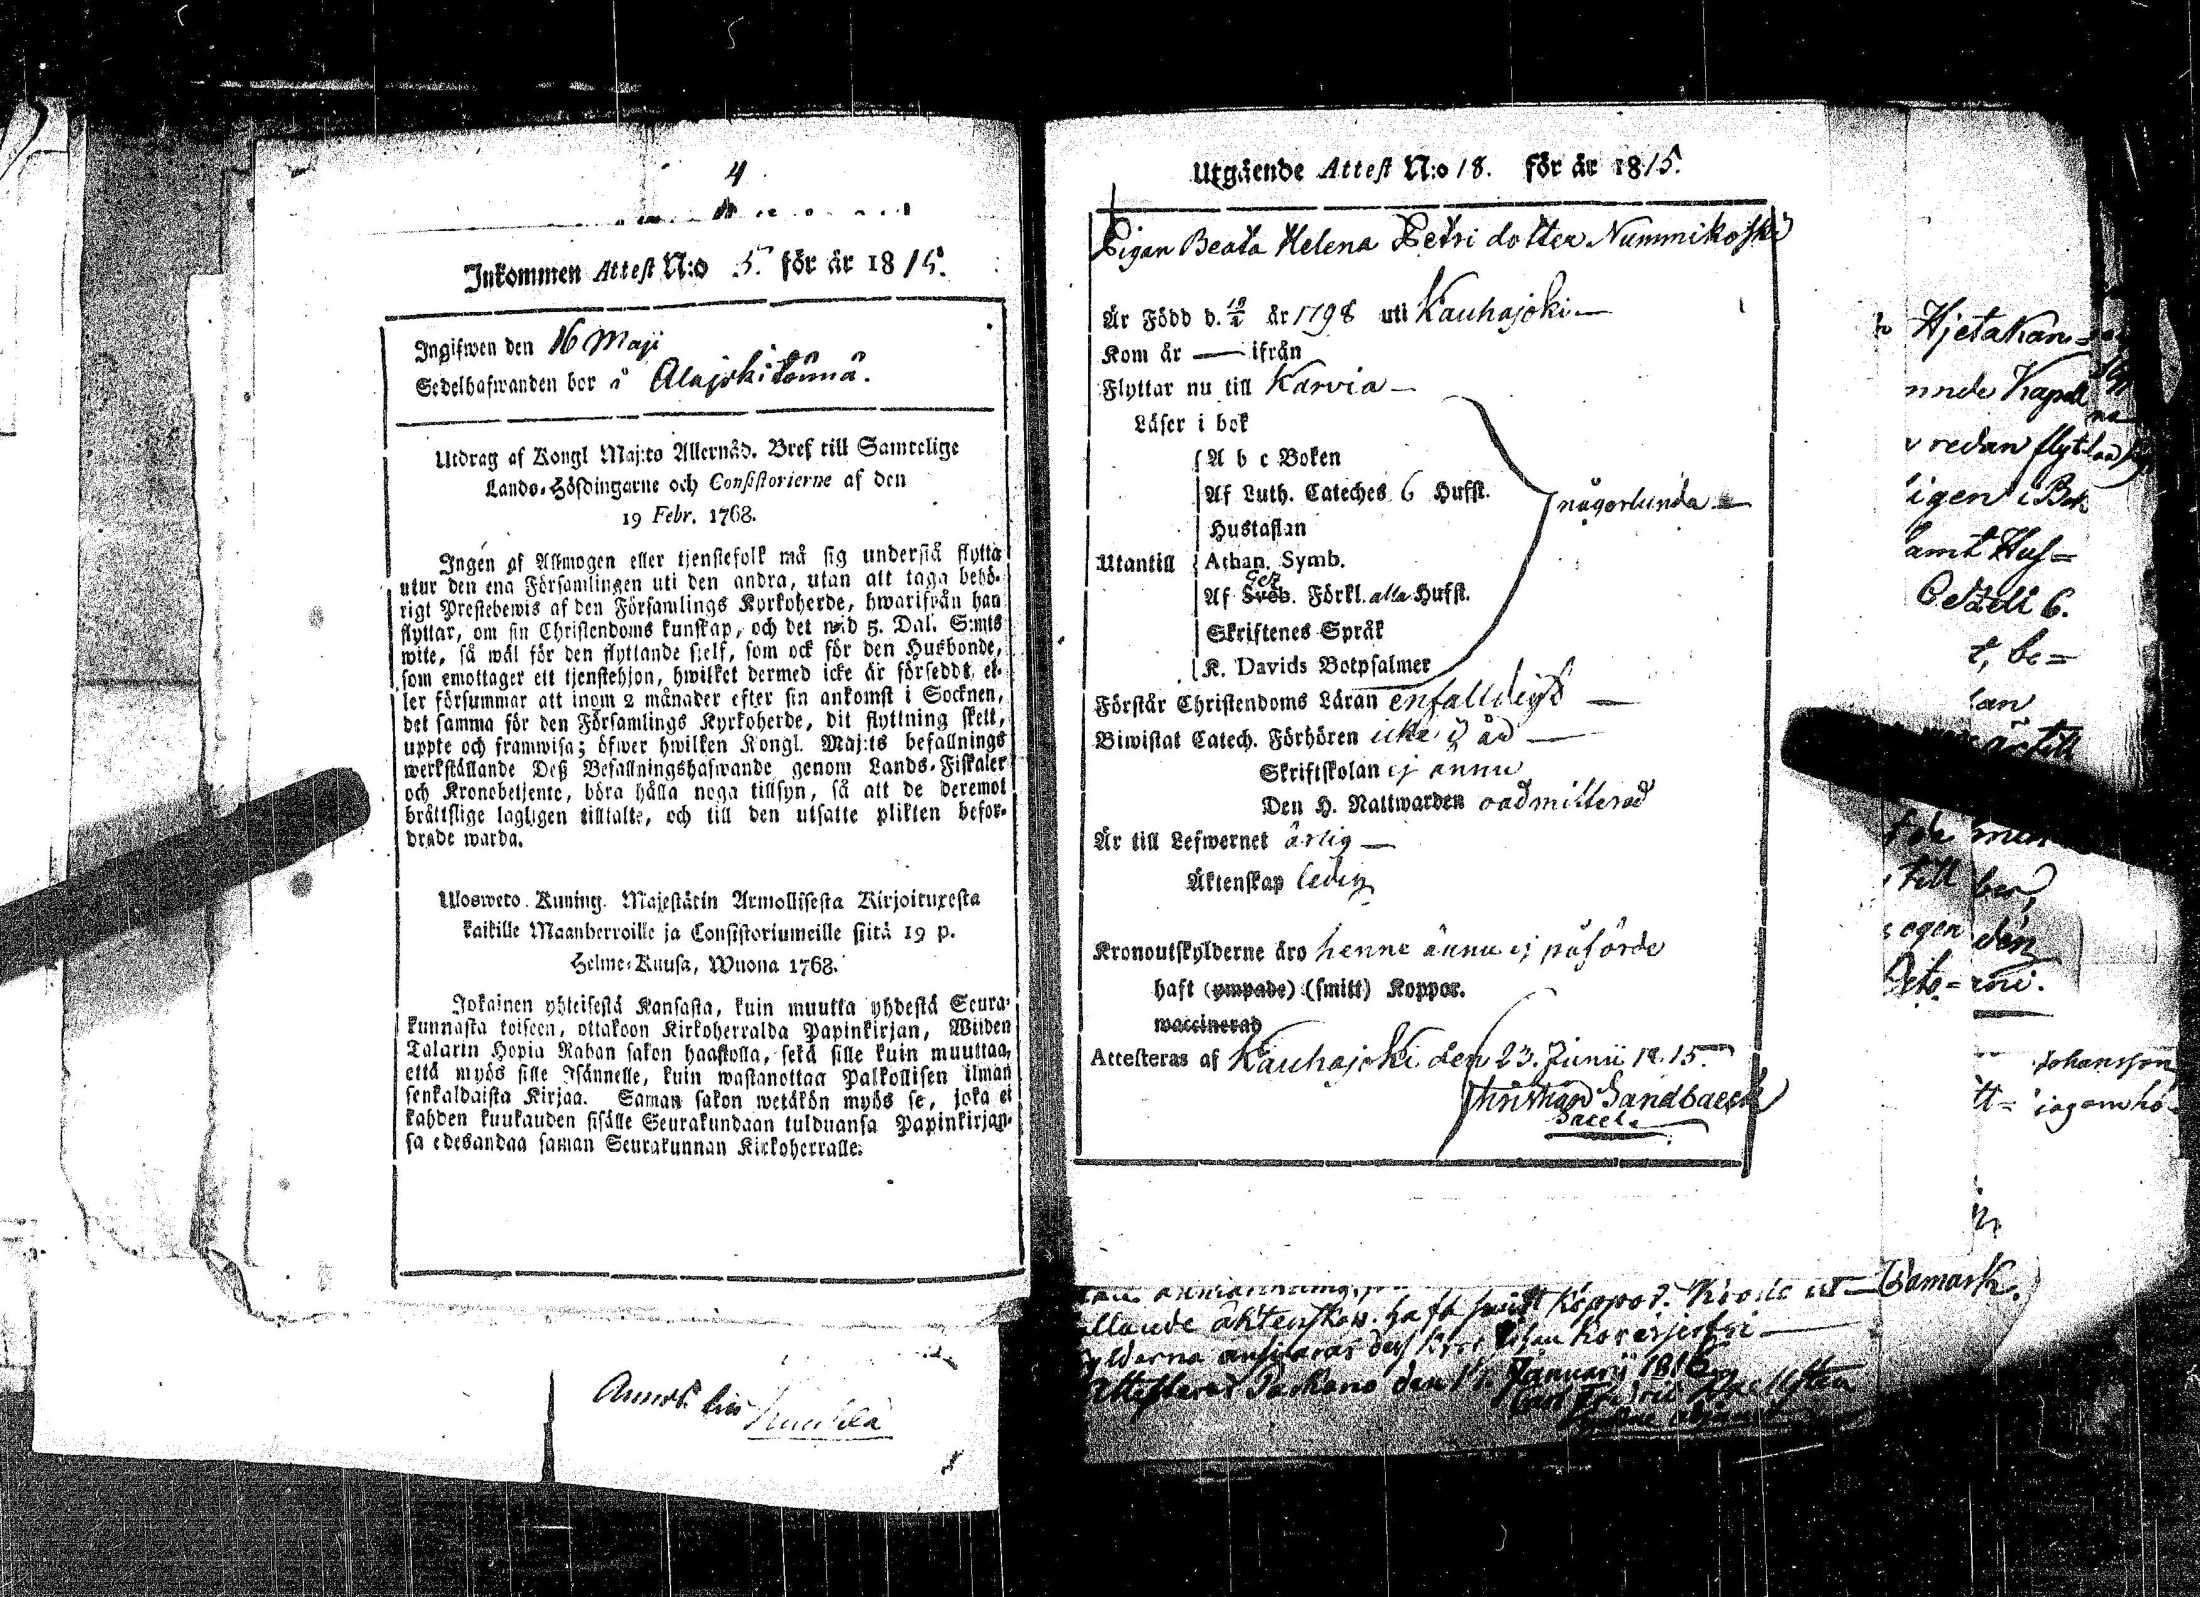 4
Inkommen Attest N:o 5. för år 1815.
Ingifwen den 16 Maji
Sedelhafwanden bor å
Utdrag af Kongl Maj:ts Allernåd. Bref till Samtelige
Lands-Höfdingarne och Consistorierne af den
19 Febr. 1768.
Ingen af Allmogen eller tjenstefolk må sig understå flytta
utur den ena Församlingen uti den andra, utan att taga behö-
rigt Prestebewis af den Församlings Kyrkoherde, hwarifrån han
flyttar, om sin Christendoms kunskap, och det wid 5. Dal. S:mts
wite, så wäl för den flyttande sjelf, som ock för den Husbonde,
som emottager ett tjenstehjon, hwilket dermed icke är försedt, el-
ler försummar att inom 2 månader efter sin ankomst i Socknen,
det samma för den Församlings Kyrkoherde, dit flyttning skett,
uppte och framwisa; öfwer hwilken Kongl. Maj:ts befallnings
werkställande Deß Befallningshafwande genom Lands-Fiskaler
och Kronobetjente, böra hålla noga tillsyn, så att de deremot
bråttslige lagligen tilltalte, och till den utsatte plikten befor-
drade warda.
Ulosweto Kuning. Majestätin Armollisesta Kirjoituxesta
kaikille Maanherroille ja Consistoriumeille siitä 19 p.
Helme-Kuusa, Wuona 1768.
Jokainen yhteisestä Kansasta, kuin muutta yhdestä Seura-
kunnasta toiseen, ottakoon Kirkoherralda Papinkirjan, Wiiden
Talarin Hopia Rahan sakon haastolla, sekä sille kuin muuttaa,
että myös sille Isännelle, kuin wastanottaa Palkollisen ilman
senkaldaista Kirjaa. Saman sakon wetäkön myös se, joka ei
kahden kuukauden sisälle Seurakundaan tulduansa Papinkirjan-
sa edesandaa saman Seurakunnan Kirkoherralle.
Utgående Attest N:o 18. för år 1815.
Pigan Beata Helena Petri dotter Nummikoski
Är Född d. 19/4 år 1798 uti Kauhajoki —
Kom år — ifrån
Flyttar nu till Karvia —
Läser i bok
A b c Boken
Af Luth. Cateches 6 Hufst.
någorlunda —
Hustaflan
Utantill Athan. Symb.
Af Sveb. Förkl. alla Hufst.
Skriftenes Språk
K. Davids Botpsalmer
Förstår Christendoms Läran enfalldigt —
Biwistat Catech. Förhören icke i år —
Skriftskolan ej ännu
Den H. Nattwarden oadmitterad
Är till Lefwernet ärlig —
Äktenskap ledig
Kronoutskylderne äro henne ännu ej påförde
haft (ympade) (smitt) Koppor.
waccinerad
Attesteras af Kauhajoki den 23. Junii 1815.
Christian Sandbaeck
Sacell.
Hjetakan
Kapell
redan flyttad
igen i Bok
samt Hus=
t, be=
Johansson
haft smitt Koppor.
Attesteras Parkano den
Januarij 1816